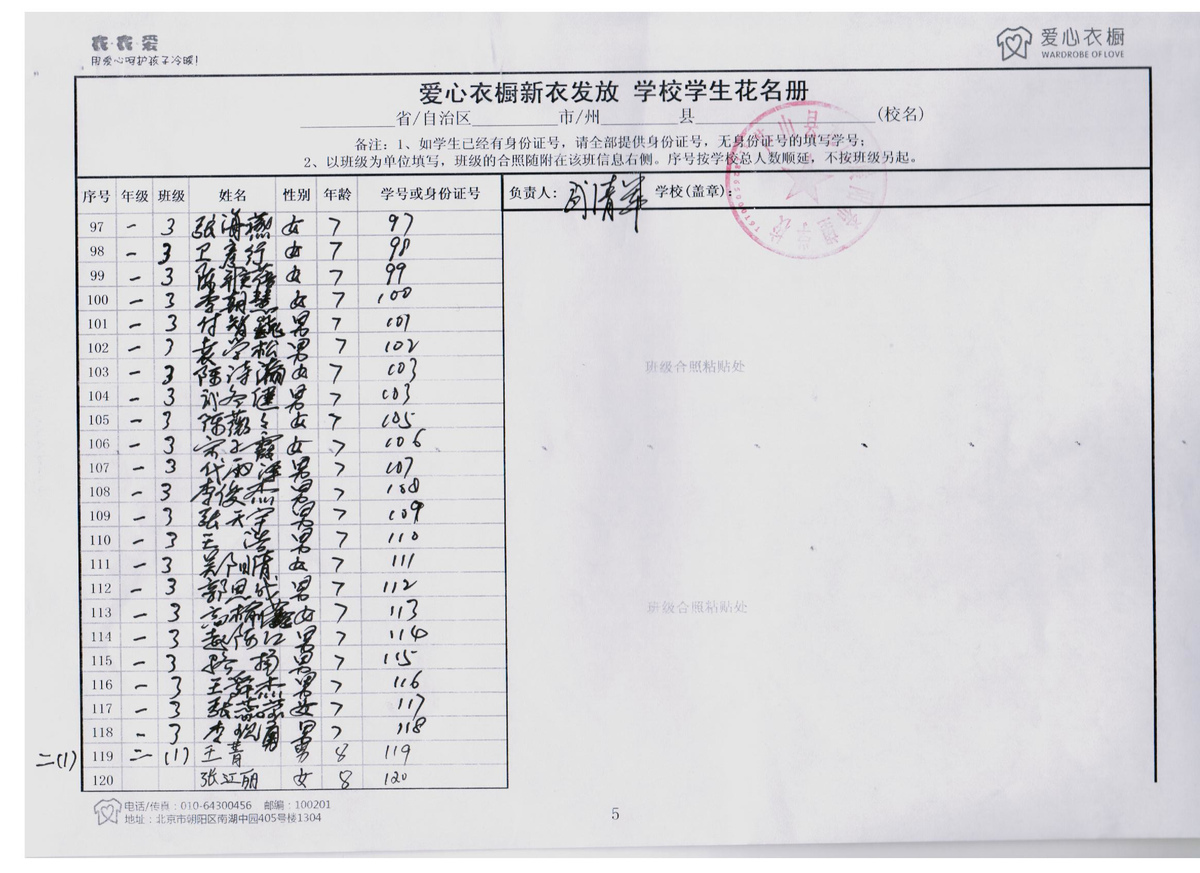 衣·衣·爱
用爱心呵护孩子冷暖!
爱心衣橱
WARDROBE OF LOVE
爱心衣橱新衣发放 学校学生花名册
省/自治区 市/州 县 (校名)
备注：1、如学生已经有身份证号，请全部提供身份证号，无身份证号的填写学号；
2、以班级为单位填写，班级的合照随附在该班信息右侧。序号按学校总人数顺延，不按班级另起。
序号 年级 班级 姓名 性别 年龄 学号或身份证号 负责人： 学校(盖章)：
97 一 3 张海燕 女 7 97
98 一 3 卫彦行 女 7 98
99 一 3 陈 女 7 99
100 一 3 李朝慧 女 7 100
101 一 3 付智 男 7 101
102 一 3 袁学松 男 7 102
103 一 3 陈诗瀚 女 7 103
104 一 3 刘冬健 男 7 103
105 一 3 陈薇 女 7 105
106 一 3 宋子霞 女 7 106
107 一 3 代雨泽 男 7 107
108 一 3 李俊杰 男 7 108
109 一 3 张天宇 男 7 109
110 一 3 王浩 男 7 110
111 一 3 吴阳倩 女 7 111
112 一 3 郭思成 男 7 112
113 一 3 高 女 7 113
114 一 3 赵陈江 男 7 114
115 一 3 男 7 115
116 一 3 王舜杰 男 7 116
117 一 3 张蕊 女 7 117
118 一 3 李 勇 男 7 118
二(1) 119 二 (1) 王菁 男 8 119
120 张江丽 女 8 120
班级合照粘贴处
班级合照粘贴处
电话/传真：010-64300456 邮编：100201
地址：北京市朝阳区南湖中园405号楼1304
5